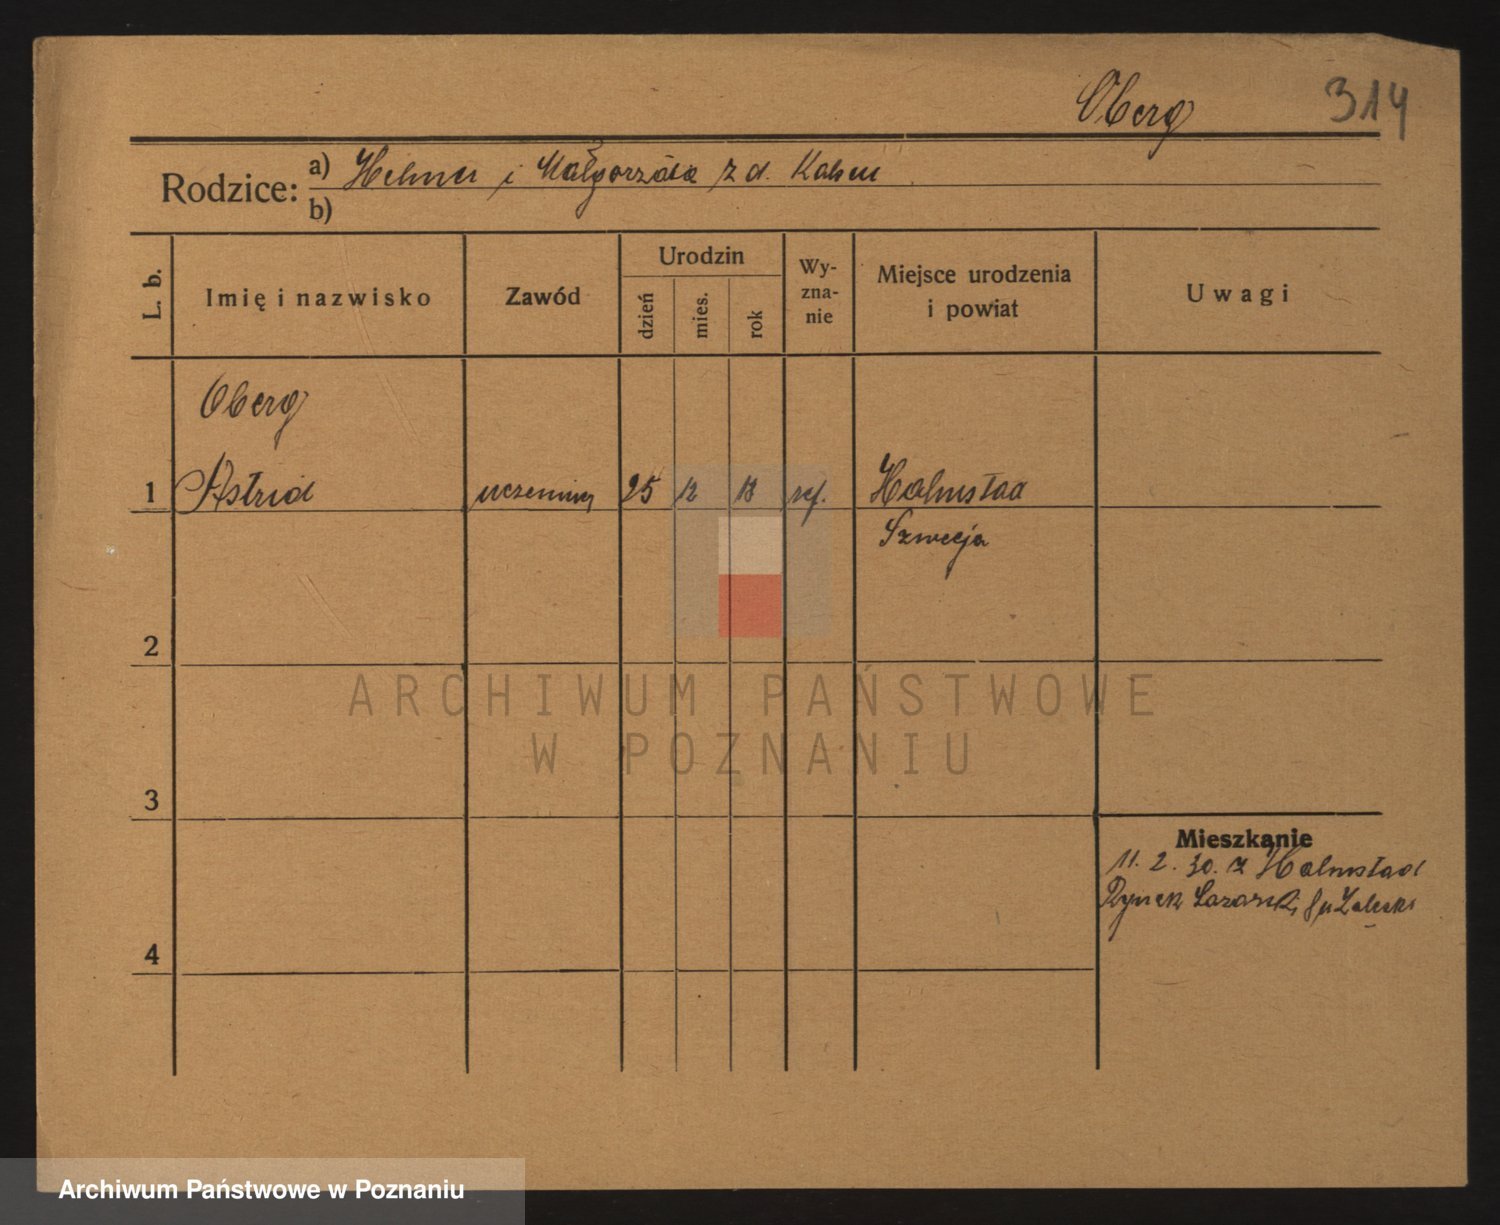 Oberg 314
Rodzice: a) Helmer i Małgorzata z d.
b)
L. b. Imię i nazwisko Zawód Urodzin dzień mies. rok Wyznanie Miejsce urodzenia i powiat Uwagi
Oberg
1 Astrid uczennica 25 12 18 ref. Halmstad
Szwecja
2
ARCHIWUM PAŃSTWOWE
W POZNANIU
3
Mieszkanie
11. 2. 30. z Halmstad
Rynek Łazarski 8 u Zaleski
4
Archiwum Państwowe w Poznaniu